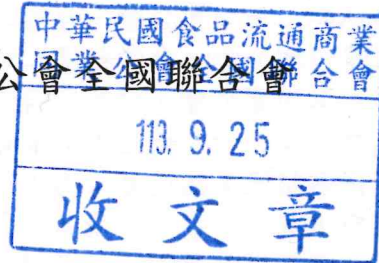 中華民國食品流通商業
同業公會全國聯合會
公會全國聯合會
113. 9. 25
收文章